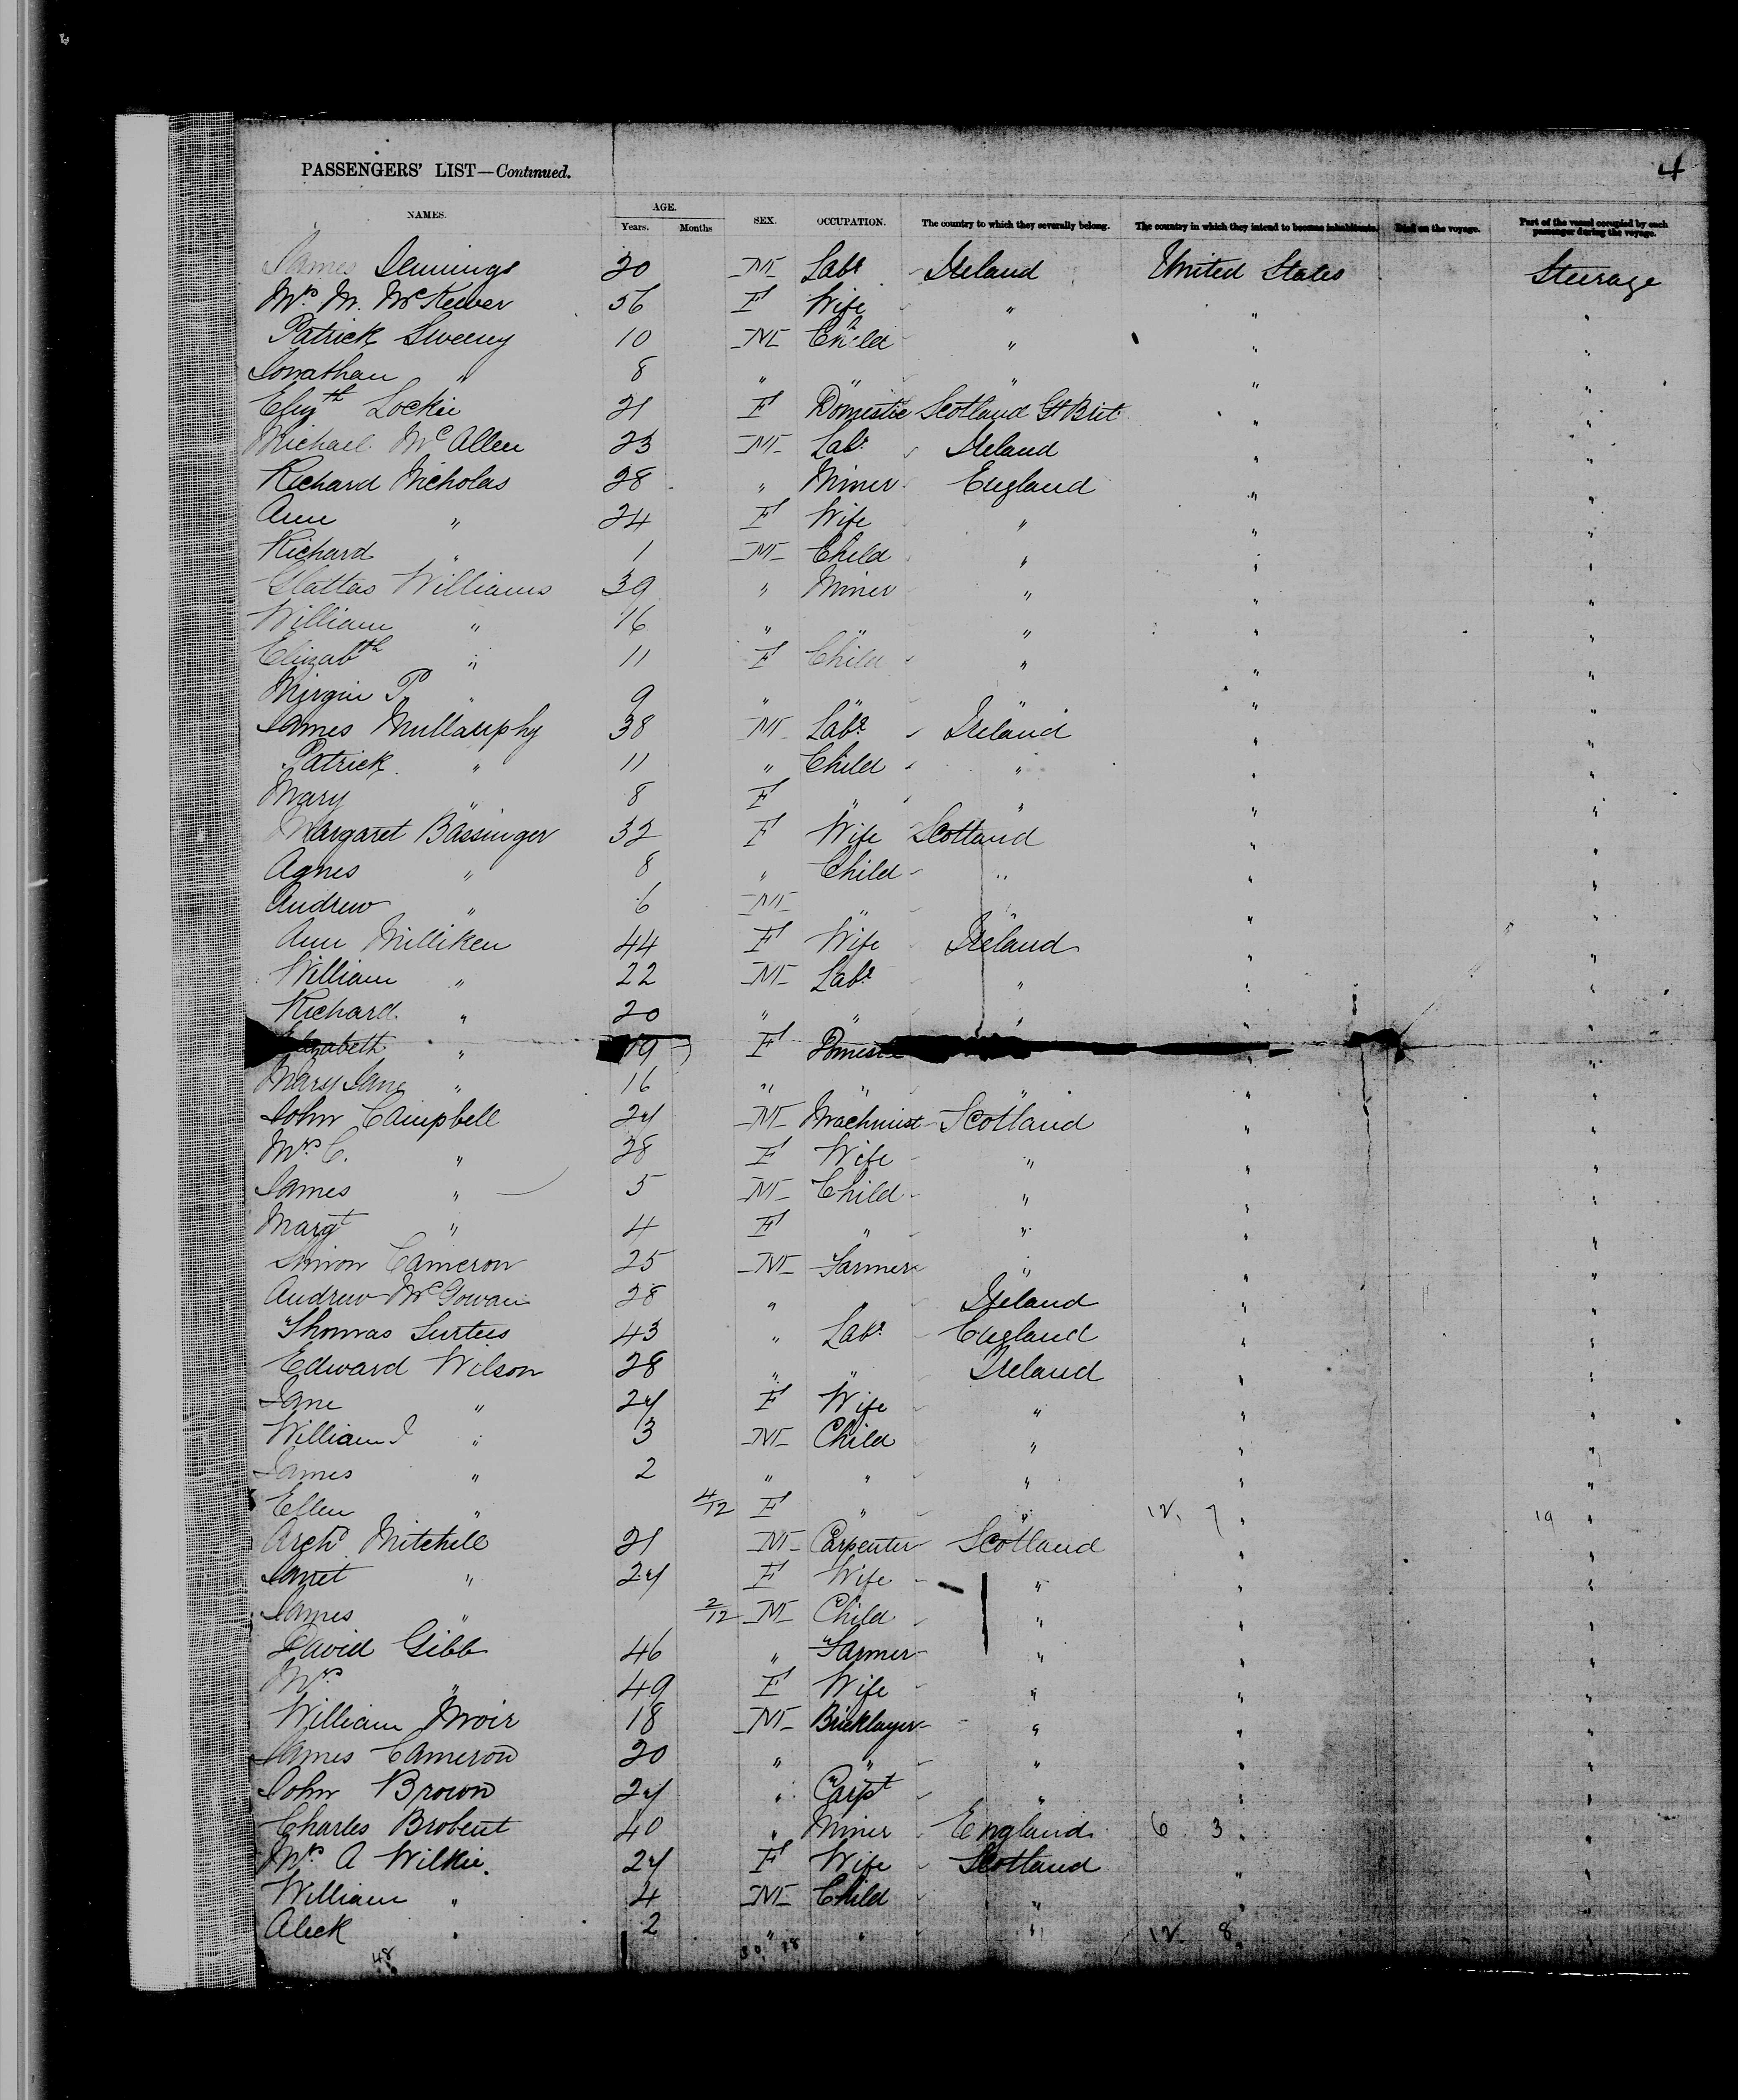 4
PASSENGERS' LIST—Continued.
NAMES. AGE. Years. Months SEX. OCCUPATION. The country to which they severally belong. The country in which they intend to become inhabitants. Died on the voyage. Part of the vessel occupied by each passenger during the voyage.
James Jennings 20 M Labr Ireland United States Steerage
Mrs M. McKeever 56 F Wife " " "
Patrick Sweeny 10 M Child " " "
Jonathan " 8 " " " " "
Elizth Lockie 21 F Domestic Scotland Gt Brit " "
Michael McAllen 23 M Labr Ireland " "
Richard Nicholas 28 " Miner England " "
Ann " 24 F Wife " " "
Richard " 1 M Child " " "
Williams 39 " Miner " " "
William " 16 " " " " "
Elizabth " 11 F Child " " "
P. " 9 " " " " "
James Mullauphy 38 M Labr Ireland " "
Patrick " 11 " Child " " "
Mary " 8 F " " " "
Margaret Bassinger 32 F Wife Scotland " "
Agnes " 8 " Child " " "
Andrew " 6 M " " " "
Ann Milliken 44 F Wife Ireland " "
William " 22 M Labr " " "
Richard " 20 " " " " "
Elizabeth " 19 F Domestic " "
Mary Jane " 16 " " " " "
John Campbell 24 M Machinist Scotland " "
Mrs C. " 28 F Wife " " "
James " 5 M Child " " "
Margt " 4 F " " " "
Simon Cameron 25 M Farmer " " "
Andrew McGowan 28 " " Ireland " "
Thomas Surtees 43 " Labr England " "
Edward Wilson 28 " " Ireland " "
Jane " 24 F Wife " " "
William J " 3 M Child " " "
James " 2 " " " " "
Ellen " 4/12 F " " 12. 7 " 19 "
Archd Mitchell 21 M Carpenter Scotland " "
Janet " 24 F Wife " " "
James " 2/12 M Child " " "
David Gibb 46 " Farmer " " "
Mrs " 49 F Wife " " "
William Muir 18 M Bricklayer " " "
James Cameron 20 " " " " "
John Brown 24 " Carpt " " "
Charles Brobent 40 " Miner England 6 3 " "
Mrs A Wilkie. 24 F Wife Scotland " "
William " 4 M Child " " "
Aleck " 2 " " " 12 8 " "
48